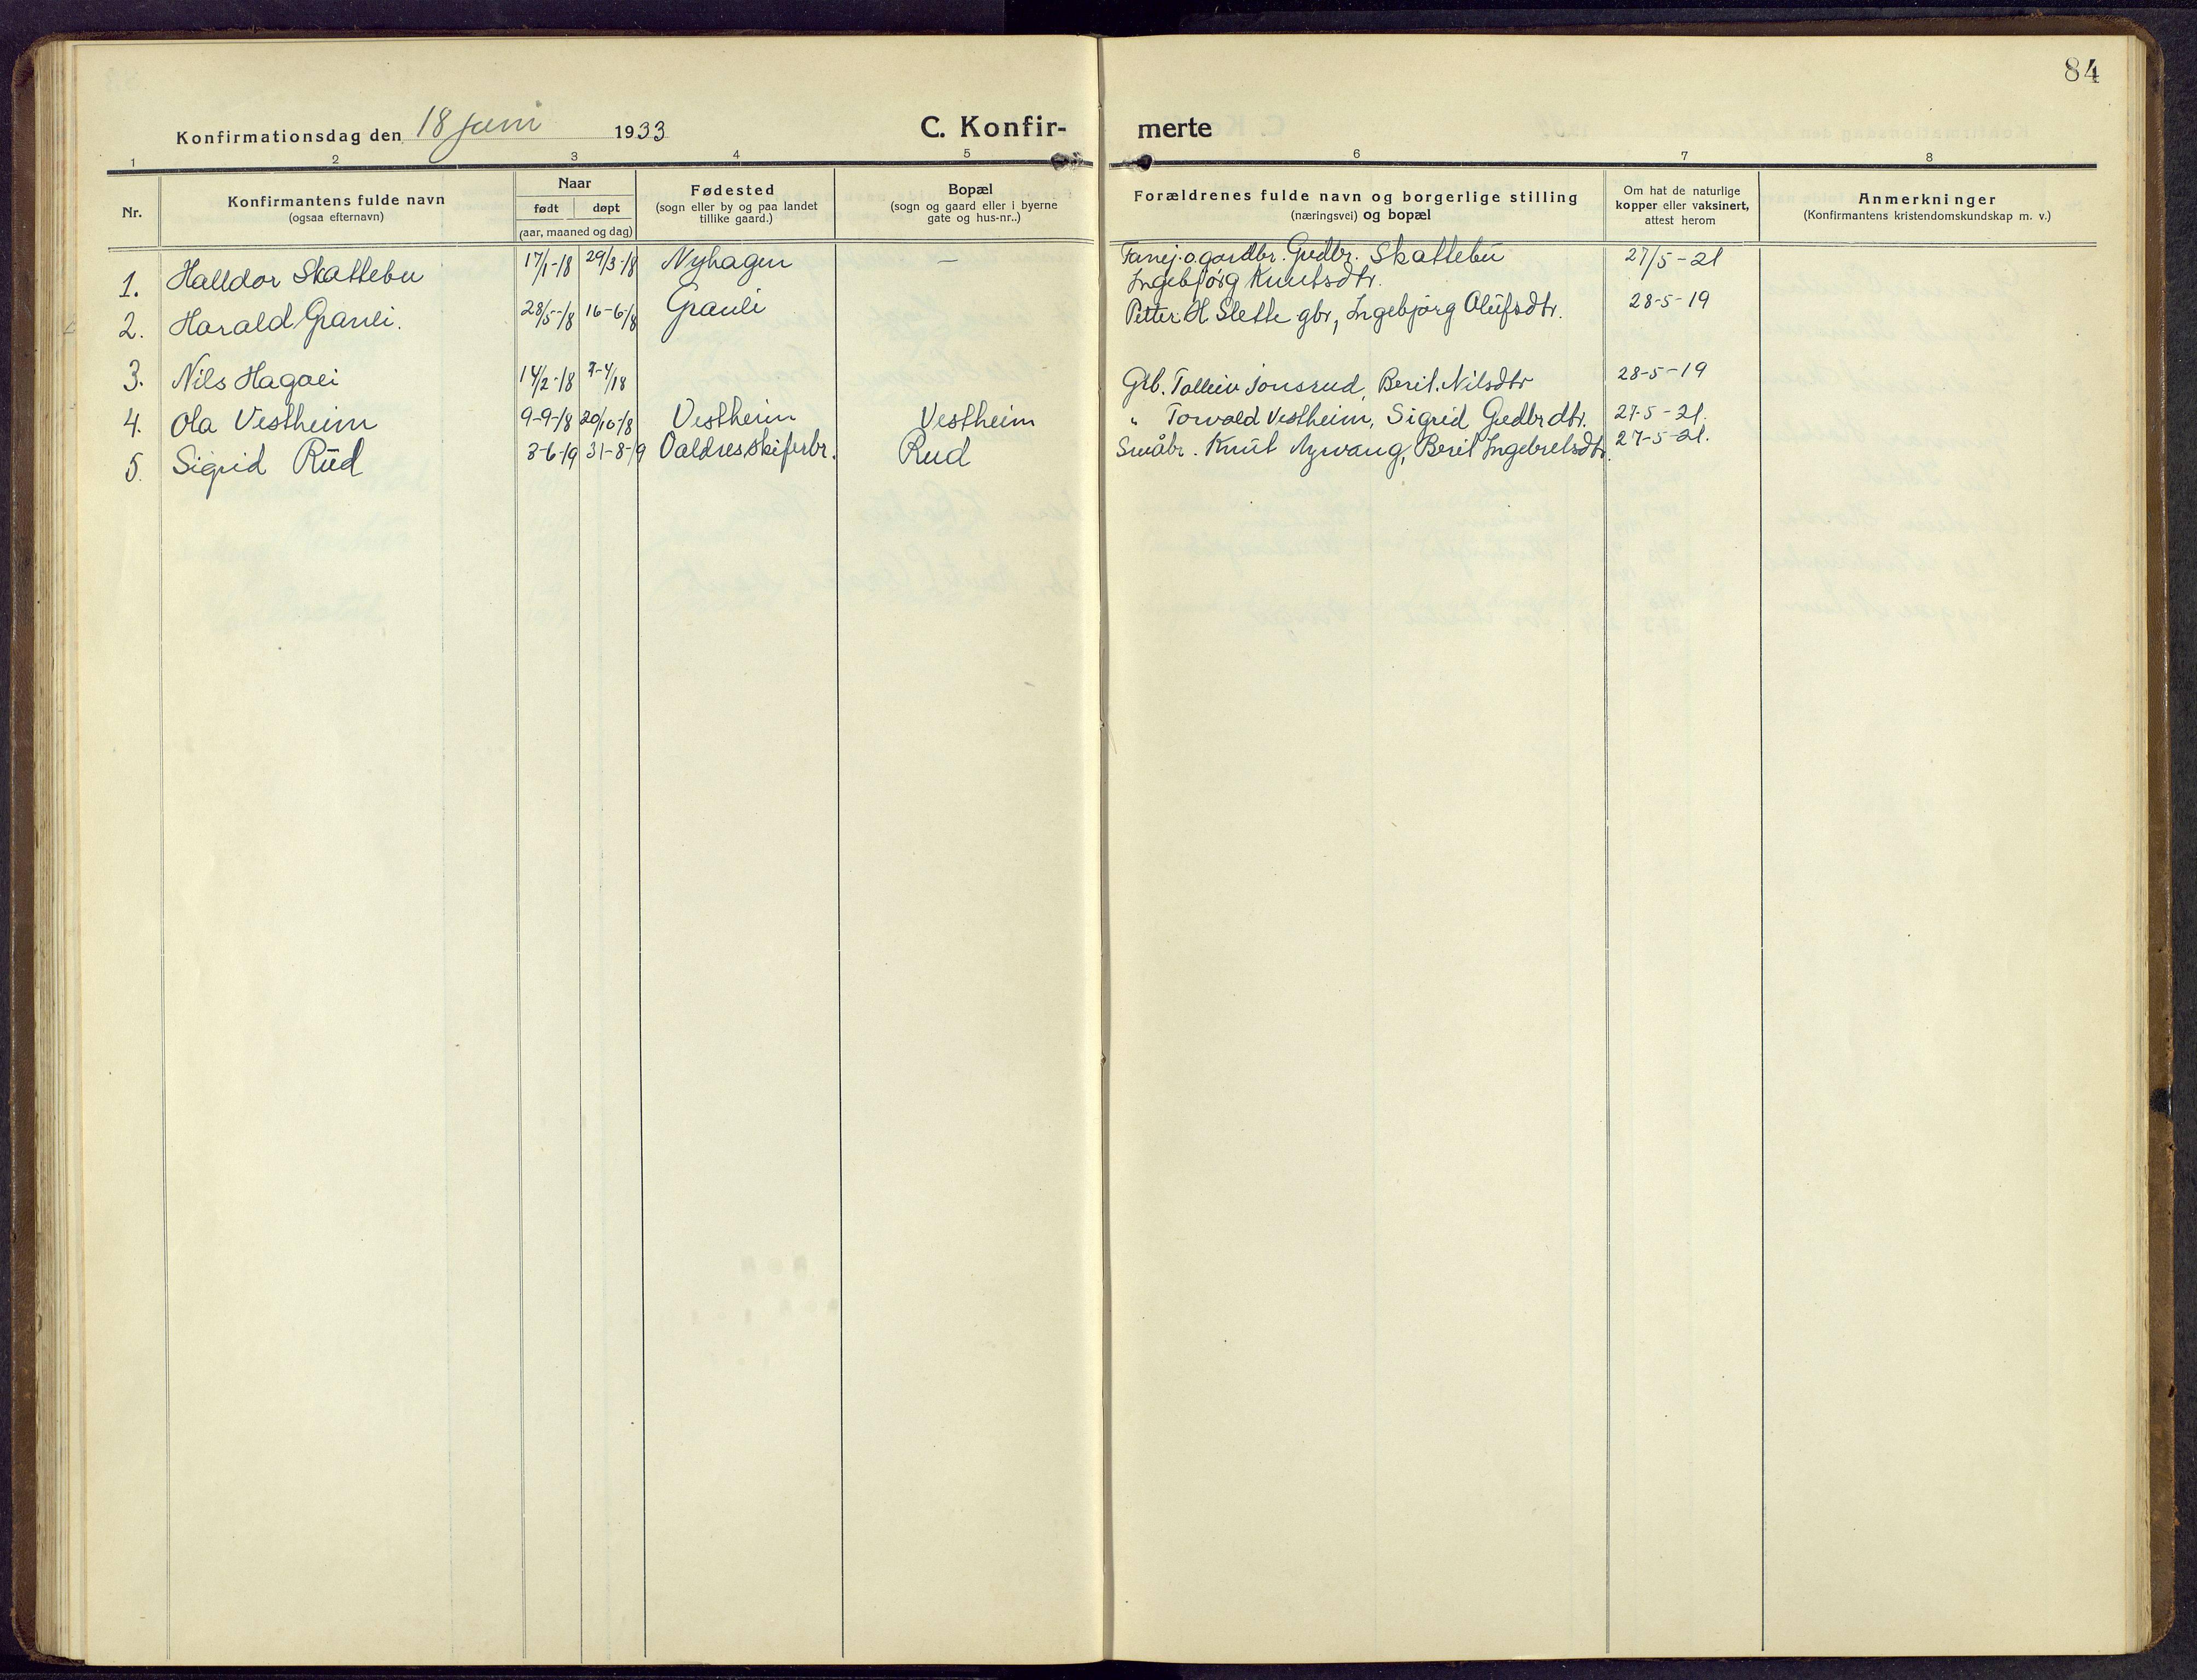 84
Konfirmationsdag den 18 juni 1933 C. Konfir- merte
1 2 3 4 5 6 7 8
Nr. Konfirmantens fulde navn (ogsaa efternavn) Naar født døpt (aar, maaned og dag) Fødested (sogn eller by og paa landet tillike gaard.) Bopæl (sogn og gaard eller i byerne gate og hus-nr..) Forældrenes fulde navn og borgerlige stilling (næringsvei) og bopæl Om hat de naturlige kopper eller vaksinert, attest herom Anmerkninger (Konfirmantens kristendomskundskap m. v.)
1. Halldor Skattebu 17/1-18 29/3-18 Nyhagen — gardbr. Gudbr. Skattebu 27/5-21
Ingebjørg Knutsdtr.
2. Harald Grauli. 28/5-18 16-6-18 Grauli Petter H Slette gbr, Ingebjørg Olufsdtr. 28-5-19
3. Nils Hagali 14/2-18 7-4/18 Grb. Tolleiv Jonsrud, Berit. Nilsdtr 28-5-19
4. Ola Vestheim 9-9-18 20/10-18 Vestheim Vestheim " Torvald Vestheim, Sigrid Gudbrdtr. 27-5-21.
5. Sigrid Rud 3-6-19 31-8-19 Valdres skiferbr. Rud Småbr. Knut Nyvang, Berit Ingebretsdtr. 27-5-21.